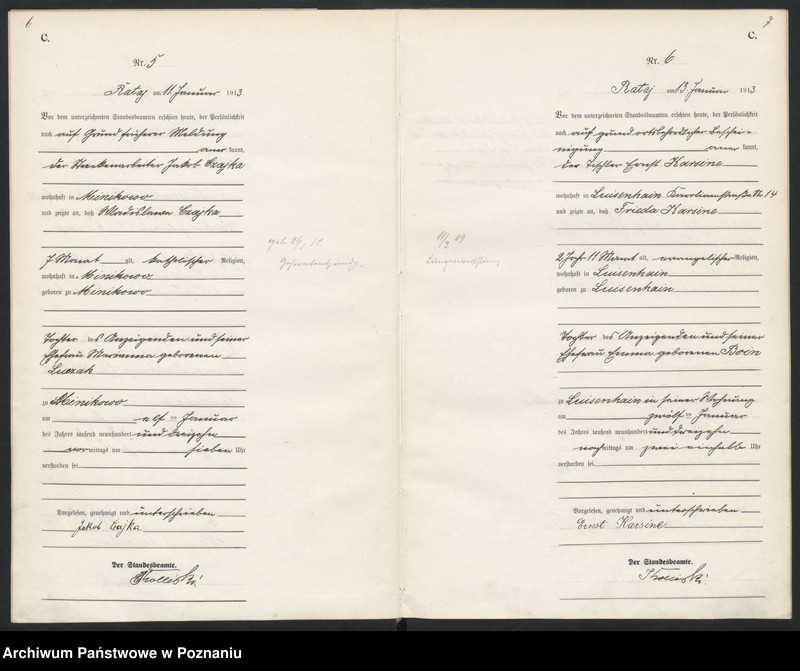 6
C.
Nr. 5
Rataj am 11. Januar 1913
Vor dem unterzeichneten Standesbeamten erschien heute, der Persönlichkeit
nach auf Grund früherer Meldung
aner kannt,
der Streckenarbeiter Jakob Czajka
wohnhaft in Minikowo
und zeigte an, daß Wladislawa Czajka
7 Monat alt, katholischer Religion,
wohnhaft in Minikowo
geboren zu Minikowo
Tochter des Anzeigenden und seiner
Ehefrau Marianna geborenen
Luczak
zu Minikowo
am elf ten Januar
des Jahres tausend neunhundert und dreizehn
vor mittags um sieben Uhr
verstorben sei
Vorgelesen, genehmigt und unterschrieben
Jakob Czajka
Der Standesbeamte.
7
C.
Nr. 6
Rataj am 13. Januar 1913
Vor dem unterzeichneten Standesbeamten erschien heute, der Persönlichkeit
nach auf grund ortsbehördlicher Beschei-
nigung aner kannt,
der Tischler Ernst Karsine
wohnhaft in Luisenhain Karolinenstraße Nr. 14
und zeigte an, daß Frieda Karsine
2 Jahr 11 Monat alt, evangelischer Religion,
wohnhaft in Luisenhain
geboren zu Luisenhain
Tochter des Anzeigenden und seiner
Ehefrau Emma geborenen
zu Luisenhain in seiner Wohnung
am zwölf ten Januar
des Jahres tausend neunhundert und dreizehn
nach mittags um zwei einhalb Uhr
verstorben sei
Vorgelesen, genehmigt und unterschrieben
Ernst Karsine
Der Standesbeamte.
Archiwum Państwowe w Poznaniu